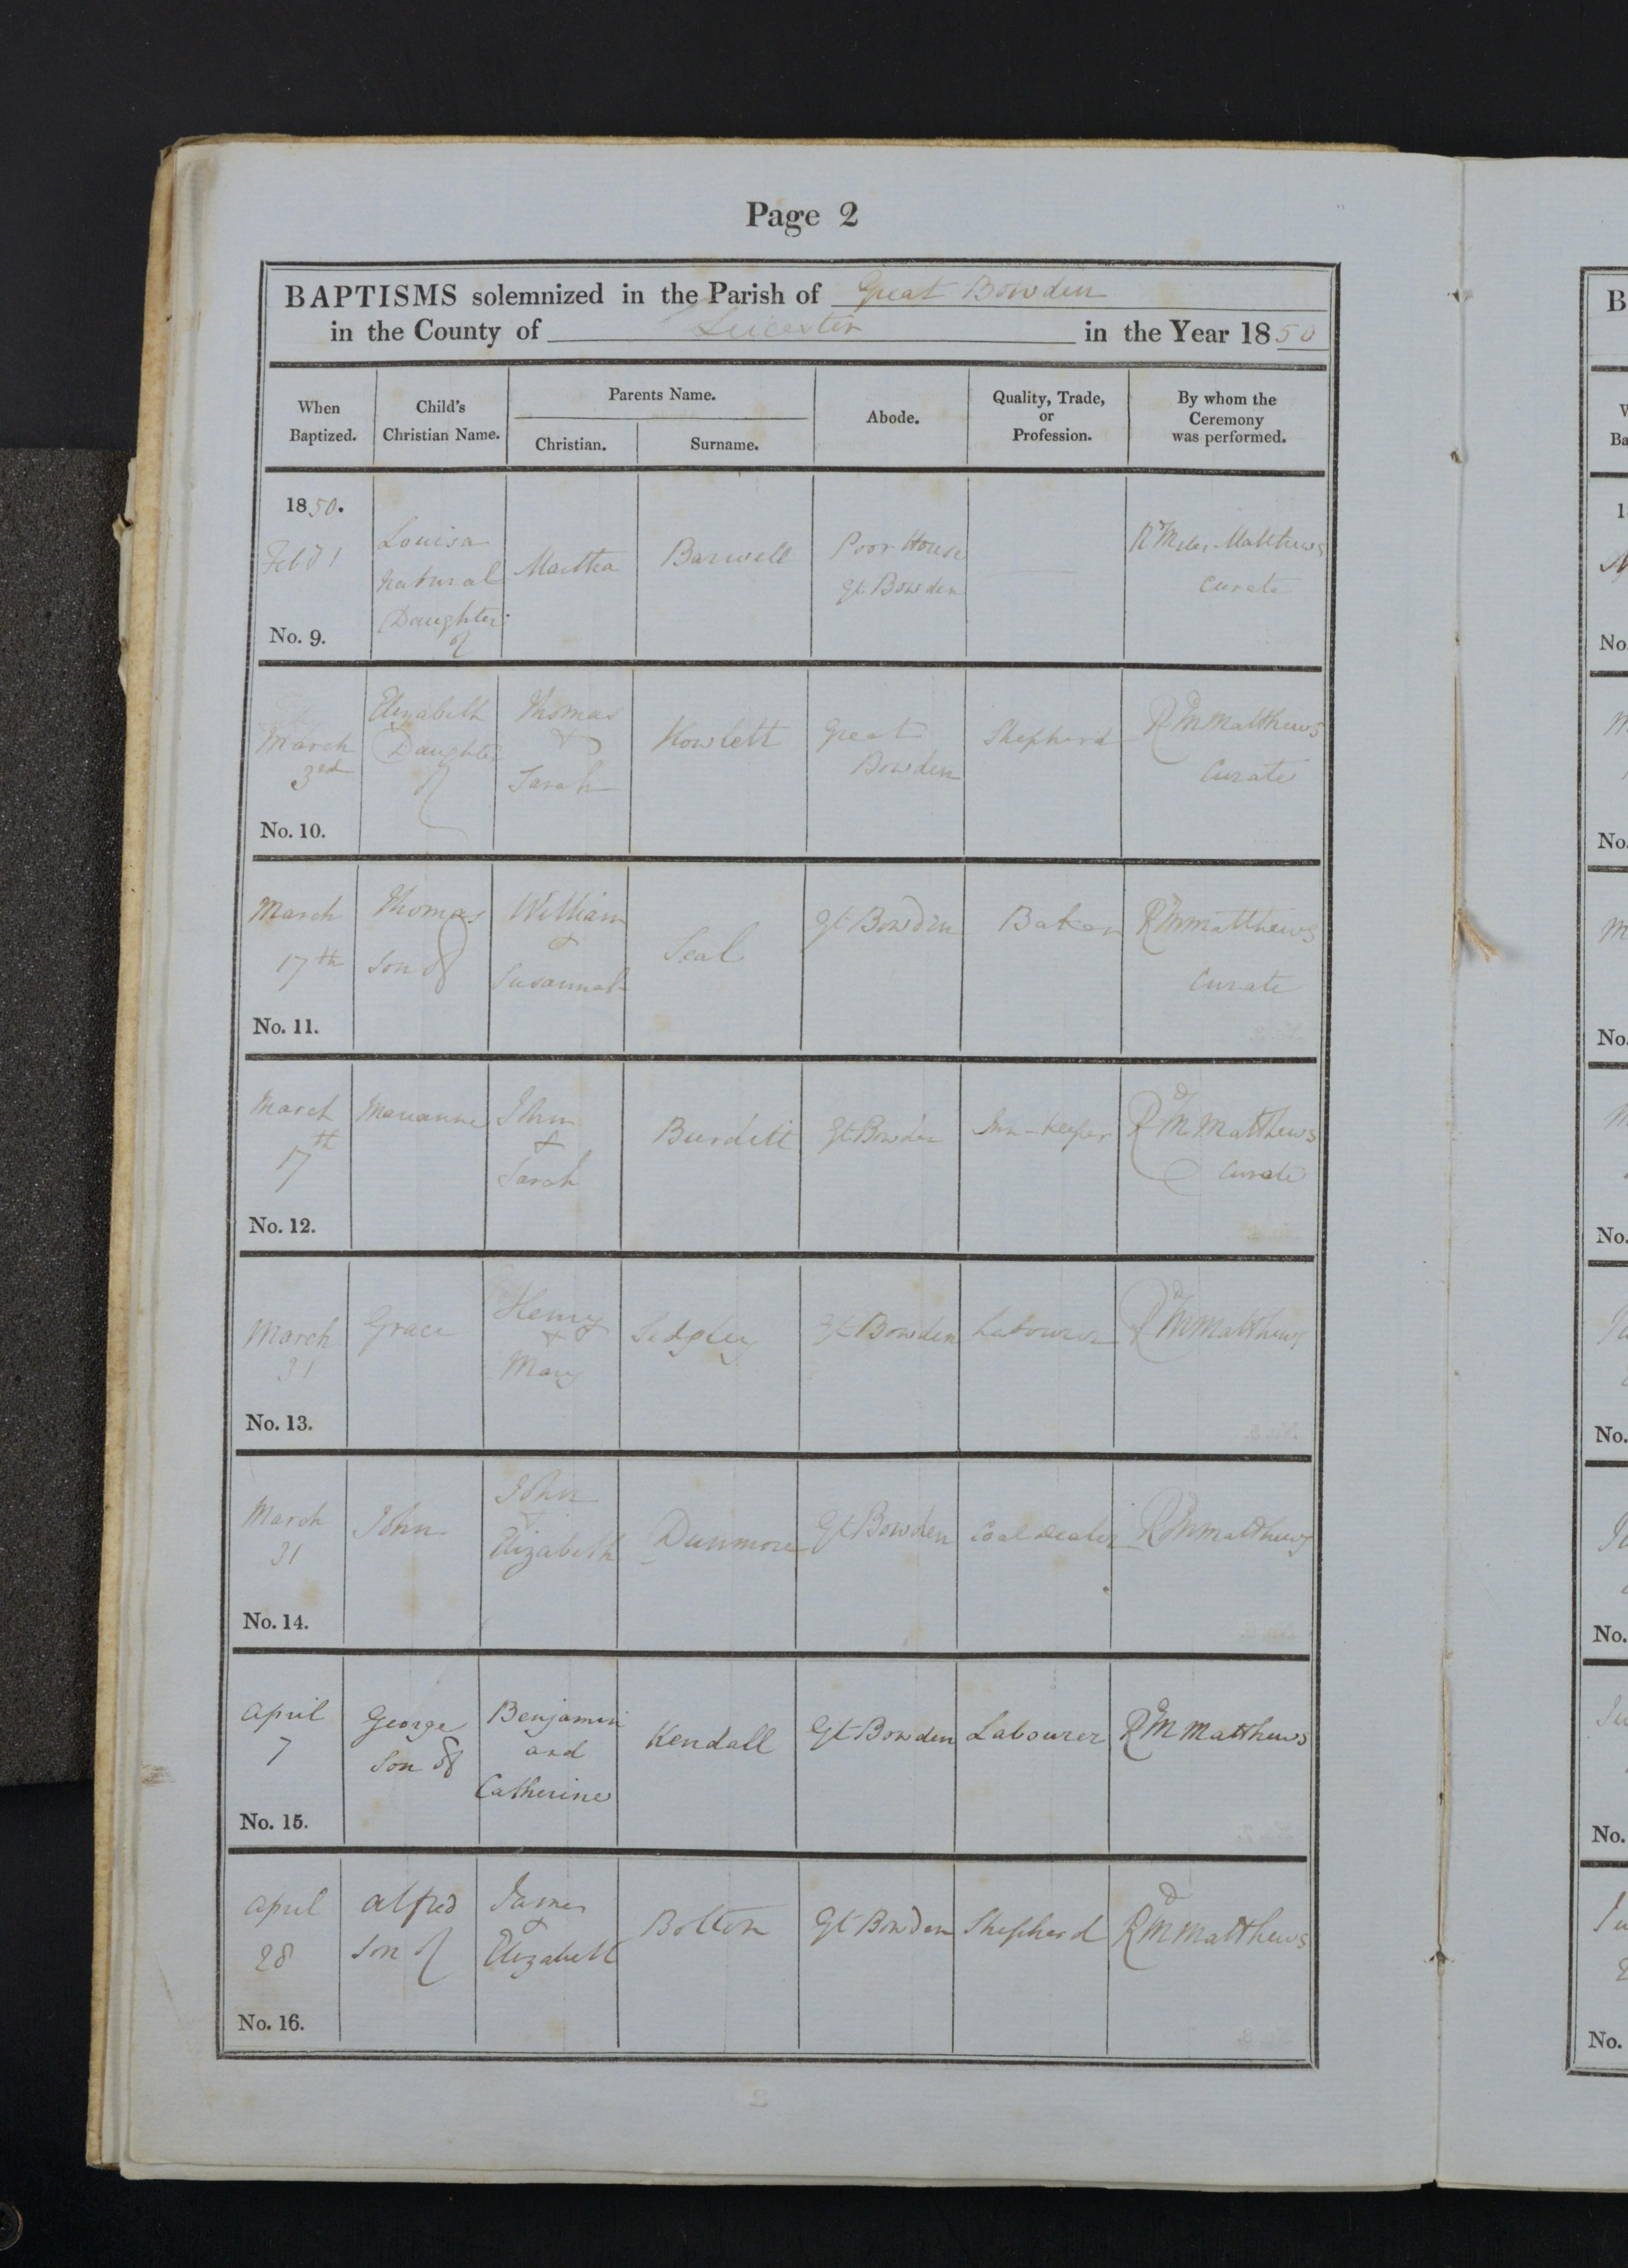 Page 2
BAPTISMS solemnized in the Parish of Great Bowden
in the County of Leicester in the Year 1850
When Baptized.
Child's Christian Name.
Parents Name.
Christian.
Surname.
Abode.
Quality, Trade, or Profession.
By whom the Ceremony was performed.
1850.
Louisa
natural
Daughter
of
Martha
Barwell
Poor House
Gt Bowden
Rd Miles Matthews
Curate
No. 9.
March
3rd
Elizabeth
Daughter
of
Thomas
&
Sarah
Howlett
Great
Bowden
Shepherd
Rd M Matthews
Curate
No. 10.
March
17th
Thomas
Son of
William
&
Susannah
Seal
Gt Bowden
Baker
Rd M Matthews
Curate
No. 11.
March
17th
Marianne
John
&
Sarah
Burditt
Gt Bowden
Inn-Keeper
Rd M Matthews
Curate
No. 12.
March
31
Grace
Henry
&
Mary
Sedgley
Gt Bowden
Labourer
Rd M Matthews
No. 13.
March
31
John
John
&
Elizabeth
Dunmore
Gt Bowden
Coal dealer
Rd M Matthews
No. 14.
April
7
George
Son of
Benjamin
and
Catherine
Kendall
Gt Bowden
Labourer
Rd M Matthews
No. 15.
April
28
Alfred
Son of
James
&
Elizabeth
Bolton
Gt Bowden
Shepherd
Rd M Matthews
No. 16.